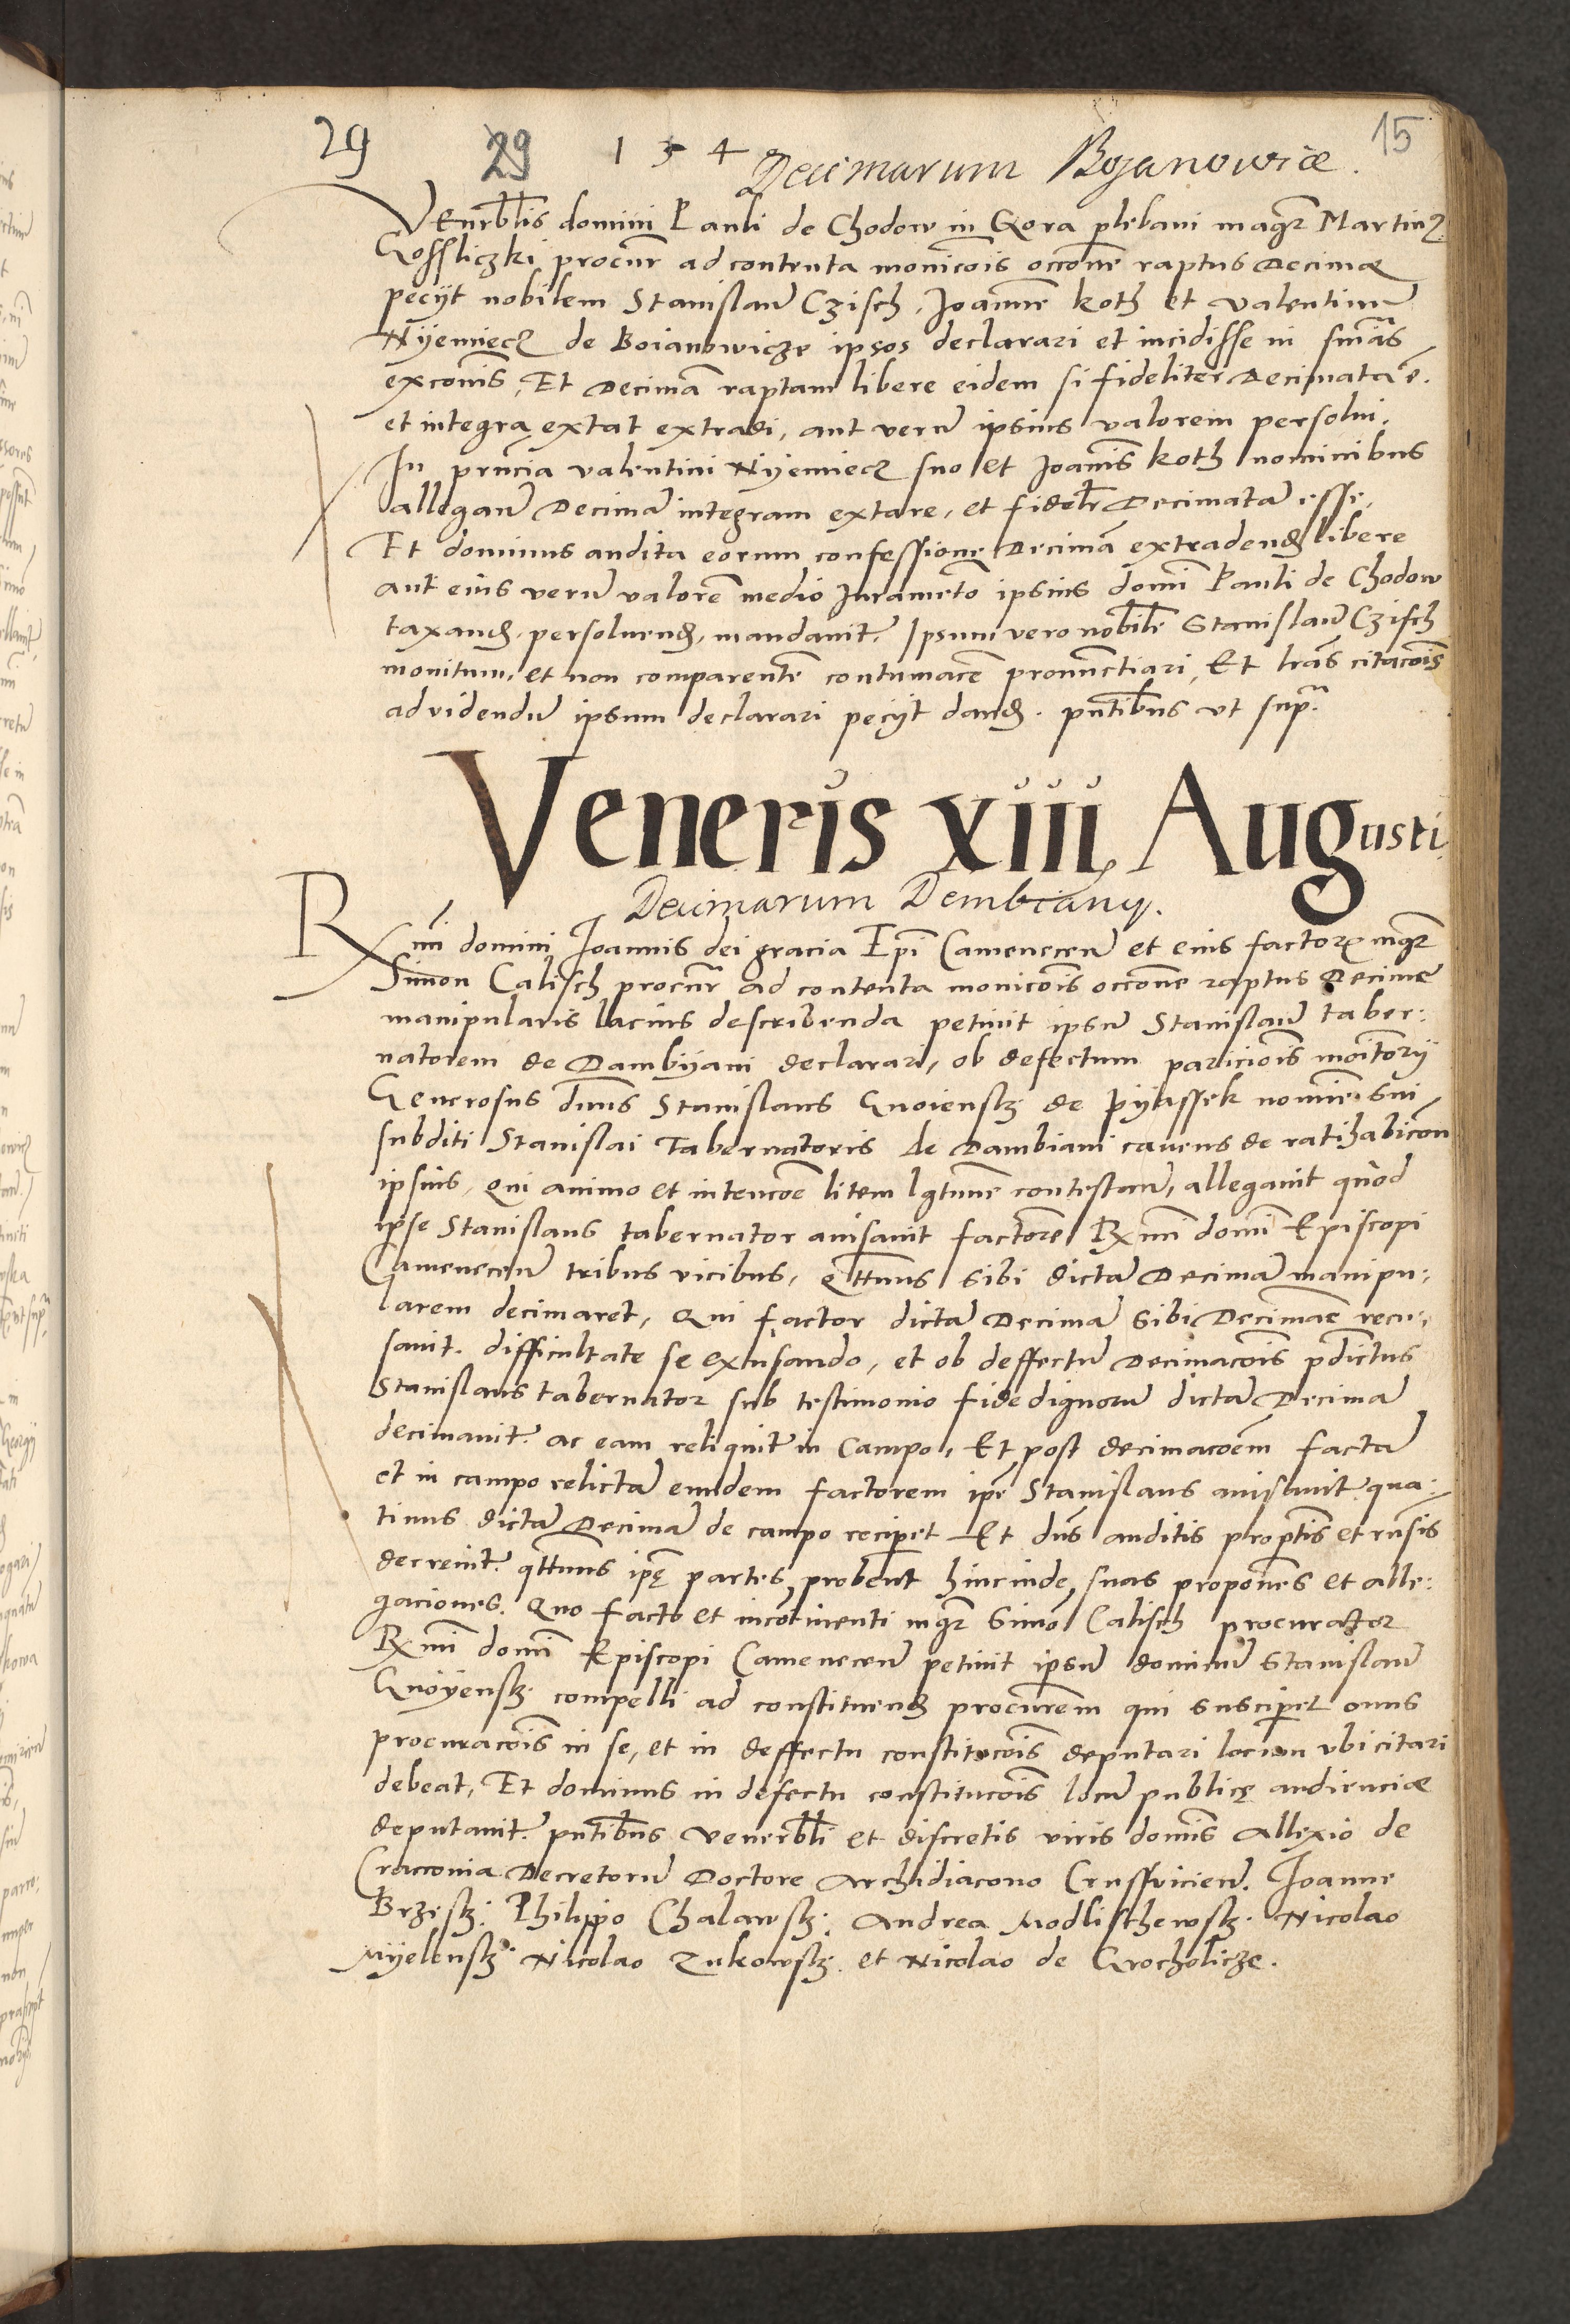 29 29 1 5 4 15
Decimarum Bojanowicæ.
VEnerblis domini Pauli de Chodow in Gora plebani magr Martinus
Gosssliczki procur ad contenta monicois occone raptus Decimæ
pecyt nobilem Stanislaũ Czisch, Joannẽ koth et Valentinũ
Nyemiecz de Boianowicze ipsos declarari et incidisse in sniãs
exconis, Et Decimã raptam libere eidem si fideliter Decimata ẽ.
et integra extat extradi, aut verũ ipsius valorem persolui.
In pnticia valentini Nyemiecz suo et Joanis koth nominibus
allegañ Decimã integram extare, et fidelr Decimatã esse,
Et dominus audita eorum confessione Decimã extradend libere
aut eius verũ valorẽ medio Juramẽto ipsius domi Pauli de Chodow
taxand. persoluend, mandauit. Ipsum vero nobile Stanislaũ Czisch
monitum, et non comparentẽ contumacẽ pronunctiari, Et lrãs citacois
ad videndũ ipsum declarari pecyt dand. pntibus vt supª.
Veneris xiii Augusti
Decimarum Dembiany.
Rxmi domini Joannis dei gracia Epi Camenecen et eius factorz mgr
Simon Calisch procur ad contenta monicois occone raptus Decimæ
manipularis lacius describenda petiuit ipsũ Stanislaũ taber:
natorem de Dambyani declarari, ob defectum pariciois moitorij
Generosus dnus Stanislaus Gnoiensky de Pyassek nomine sui
subditi Stanislai Tabernatoris de Dambiani cauens de ratihabicon
ipsius, qui animo et intencoe litem lgtimæ contestan, allegauit quod
ipse Stanislaus tabernator auisauit factorẽ Rxmi domi Episcopi
Camenecen tribus vicibus, qttnus sibi dictã Decimã manipu:
larem decimaret, Qui factor dictã Decimã sibi Decimare recu:
sauit. difficultate se exusando, et ob deffectũ Decimacois pdictus
Stanislaus tabernator sub testimonio fidedignorũ dictã Decimã
decimauit. ac eam reliquit in Campo, Et post decimacoẽm factã
et in campo relictã eundem factorem ipe Stanislaus auisauit qua:
tinus dictã Decimã de campo reciperet Et dus auditis proptis et rnsis
decreuit. qttnus ipę partes probent hincinde suas propones et alle:
gaciones. Quo facto et incotinenti mgr Simo Calisch procurator
Rxmi domi Episcopi Camenecen petiuit ipsũ dominũ Stanislaũ
Gnoyensky compelli ad constituend procurem qui susciperet onus
procuracois in se, et in deffectu constitucois deputari locum vbi citari
debeat, Et dominus in defectu constitucois locũ publicę audienciæ
deputauit. pntibus venerbli et discretis viris domis Allexio de
Cracouia Decretorũ Doctore Archidiacono Crusuicien. Joanne
Brzesky. Philippo Chalawsky. Andrea Modlischewsky. Nicolao
Myelensky. Nicolao Zukowsky. et Nicolao de Grocholicze.